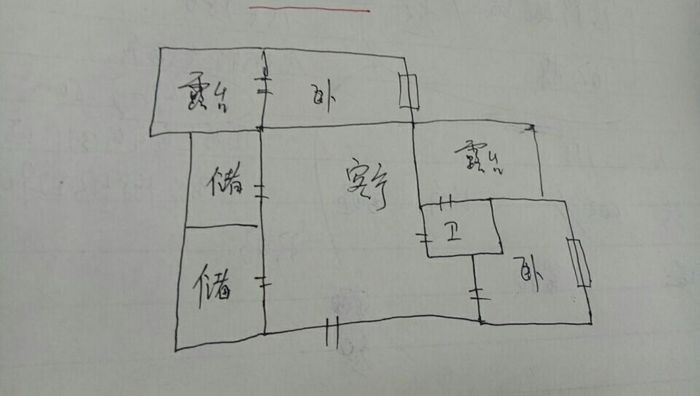 露台
卧
储
客厅
露台
卫
储
卧